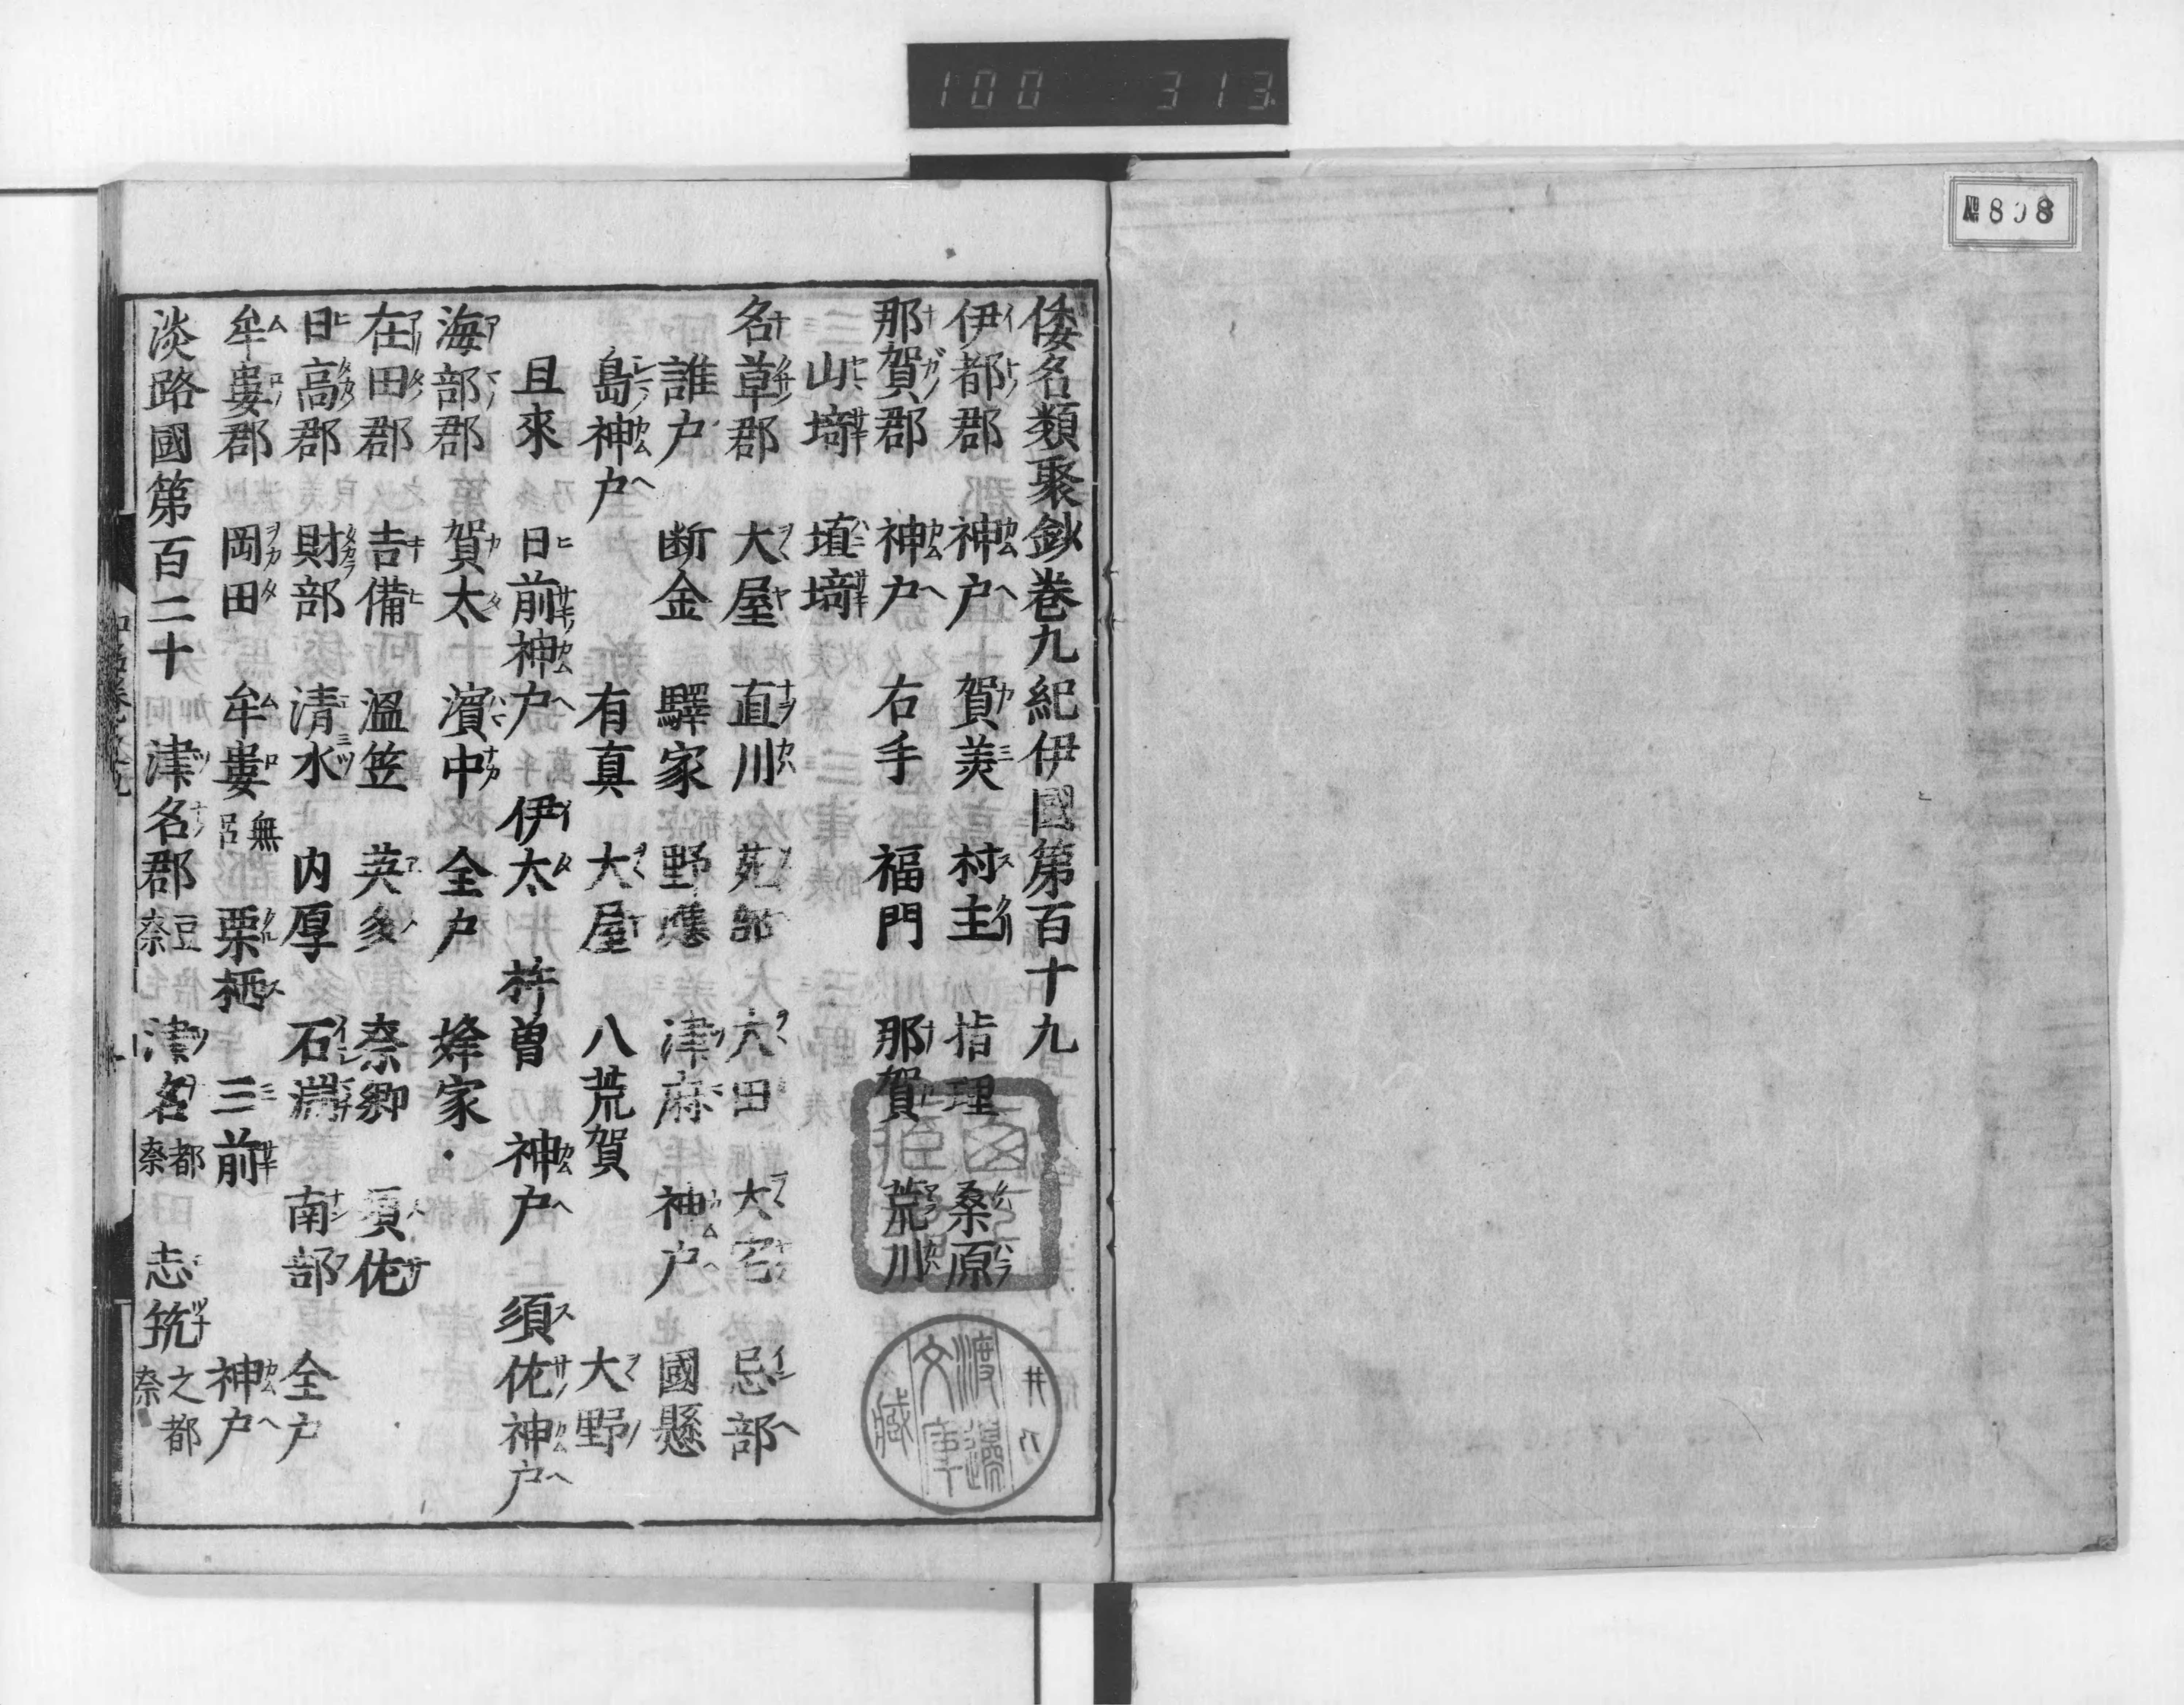 100 313
№808
倭名類聚鈔卷九紀伊國第百十九
伊都郡 神戸 賀美 村主 指理 桑原
那賀郡 神戸 右手 福門 那賀 荒川
山埼 埴埼
名草郡 大屋 直川 苑部 大田 大宅 忌部
誰戸 断金 驛家 野應 津麻 神戸 國懸
島神戸 有真 大屋 八荒賀 大野
且來 日前神戸 伊太 祚曽 神戸 須佐神戸
海部郡 賀太 濱中 全戸 㷭家
在田郡 吉備 溫笠 英多 奈郷 須佐
日高郡 財部 清水 内厚 石淵 南部 全戸
牟婁郡 岡田 牟婁無呂 栗栖 三前 神戸
淡路國第百二十 津名郡豆奈 津名都奈 志筑之都奈
渡邊文庫臧